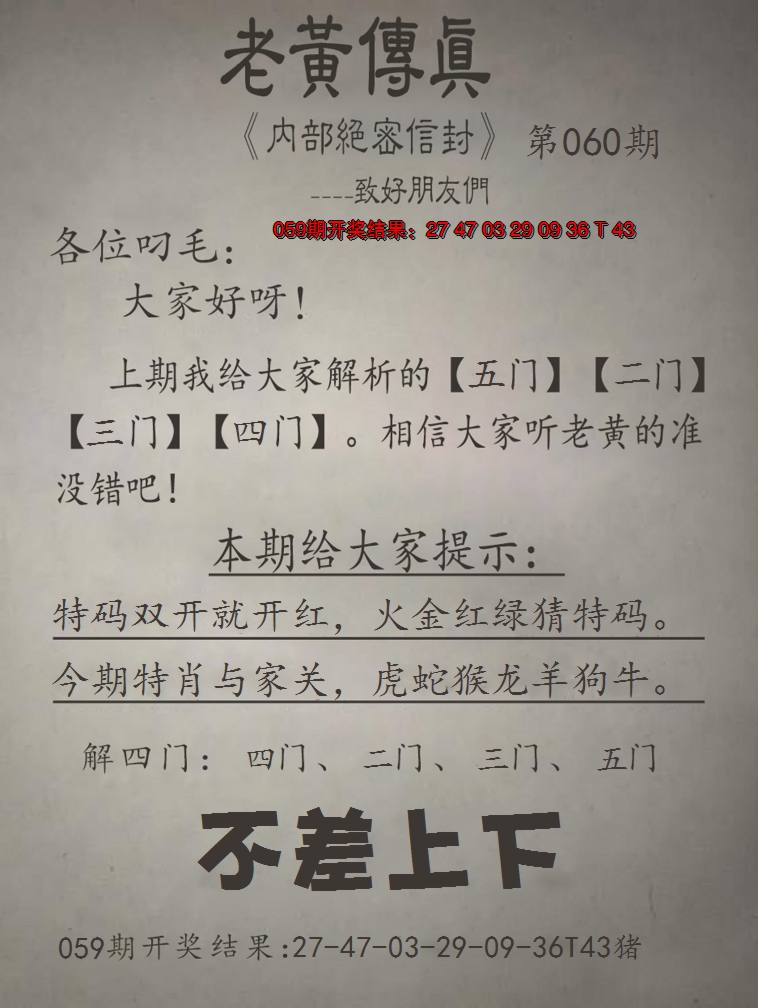 老黃傳眞
《内部絕密信封》 第060期
----致好朋友們
059期开奖结果：27 47 03 29 09 36 T 43
各位叼毛：
大家好呀！
上期我给大家解析的【五门】【二门】
【三门】【四门】。相信大家听老黄的准
没错吧！
本期给大家提示：
特码双开就开红，火金红绿猜特码。
今期特肖与家关，虎蛇猴龙羊狗牛。
解四门： 四门、 二门、 三门、 五门
不差上下
059期开奖结果:27-47-03-29-09-36T43猪